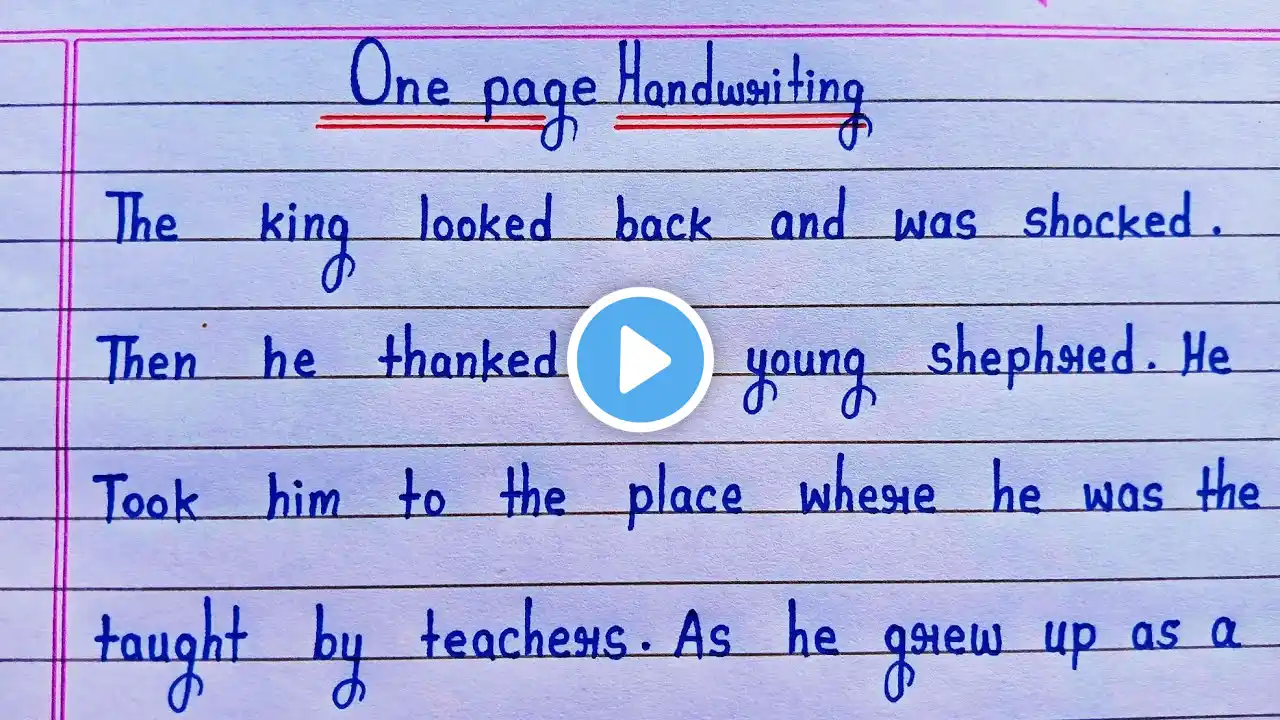 One page Handwriting
The king looked back and was shocked.
Then he thanked young shephred. He
Took him to the place where he was the
taught by teachers. As he grew up as a